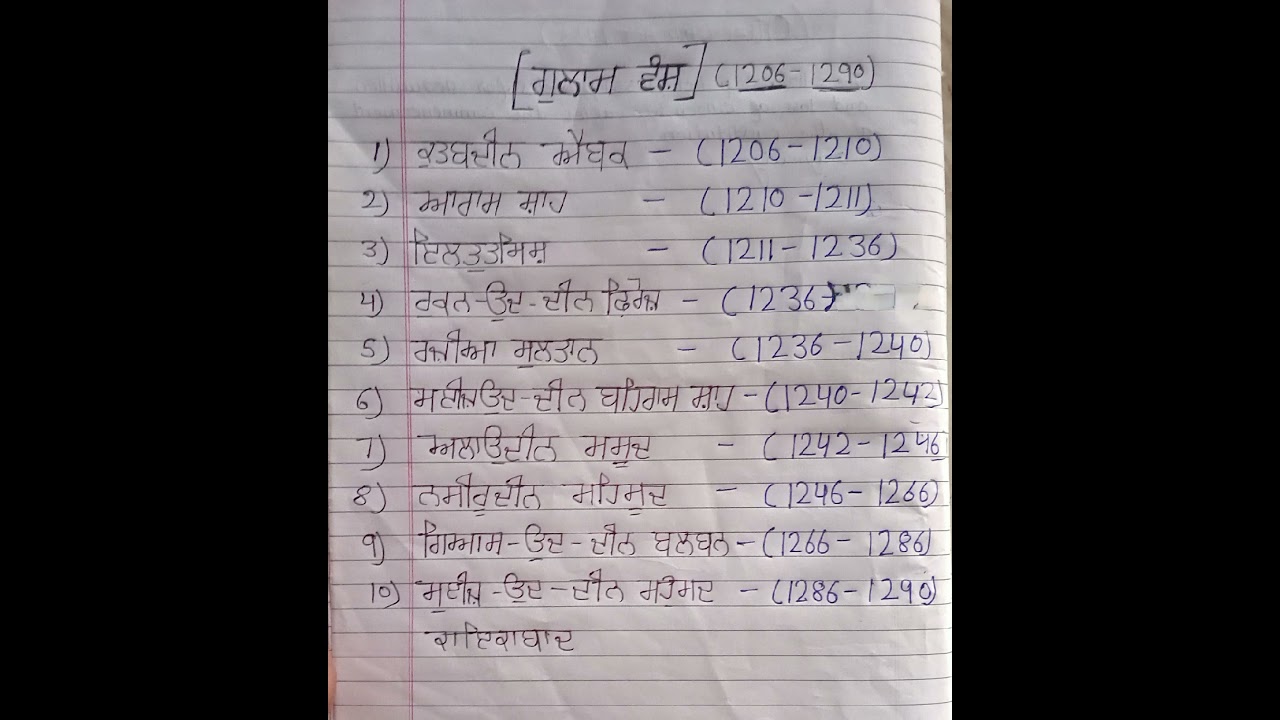 [ਗੁਲਾਮ ਵੰਸ਼] (1206-1290)
1) ਕੁਤਬਦੀਨ ਐਬਕ - (1206-1210)
2) ਆਰਾਮ ਸ਼ਾਹ - (1210-1211)
3) ਇਲਤੁਤਮਿਸ਼ - (1211-1236)
4) ਰੁਕਨ-ਉਦ-ਦੀਨ ਫ਼ਿਰੋਜ਼ - (1236
5) ਰਜ਼ੀਆ ਸੁਲਤਾਨ - (1236-1240)
6) ਮਈਜ਼ਉਦ-ਦੀਨ ਬਹਿਰਾਮ ਸ਼ਾਹ - (1240-1242)
7) ਅਲਾਉਦੀਨ ਮਸੂਦ - (1242-1246
8) ਨਸੀਰੁਦੀਨ ਮਹਿਮੂਦ - (1246-1266)
9) ਗਿਆਸ-ਉਦ-ਦੀਨ ਬਲਬਨ - (1266-1286)
10) ਮੁਈਜ਼-ਉਦ-ਦੀਨ ਮਹੁੰਮਦ - (1286-1290)